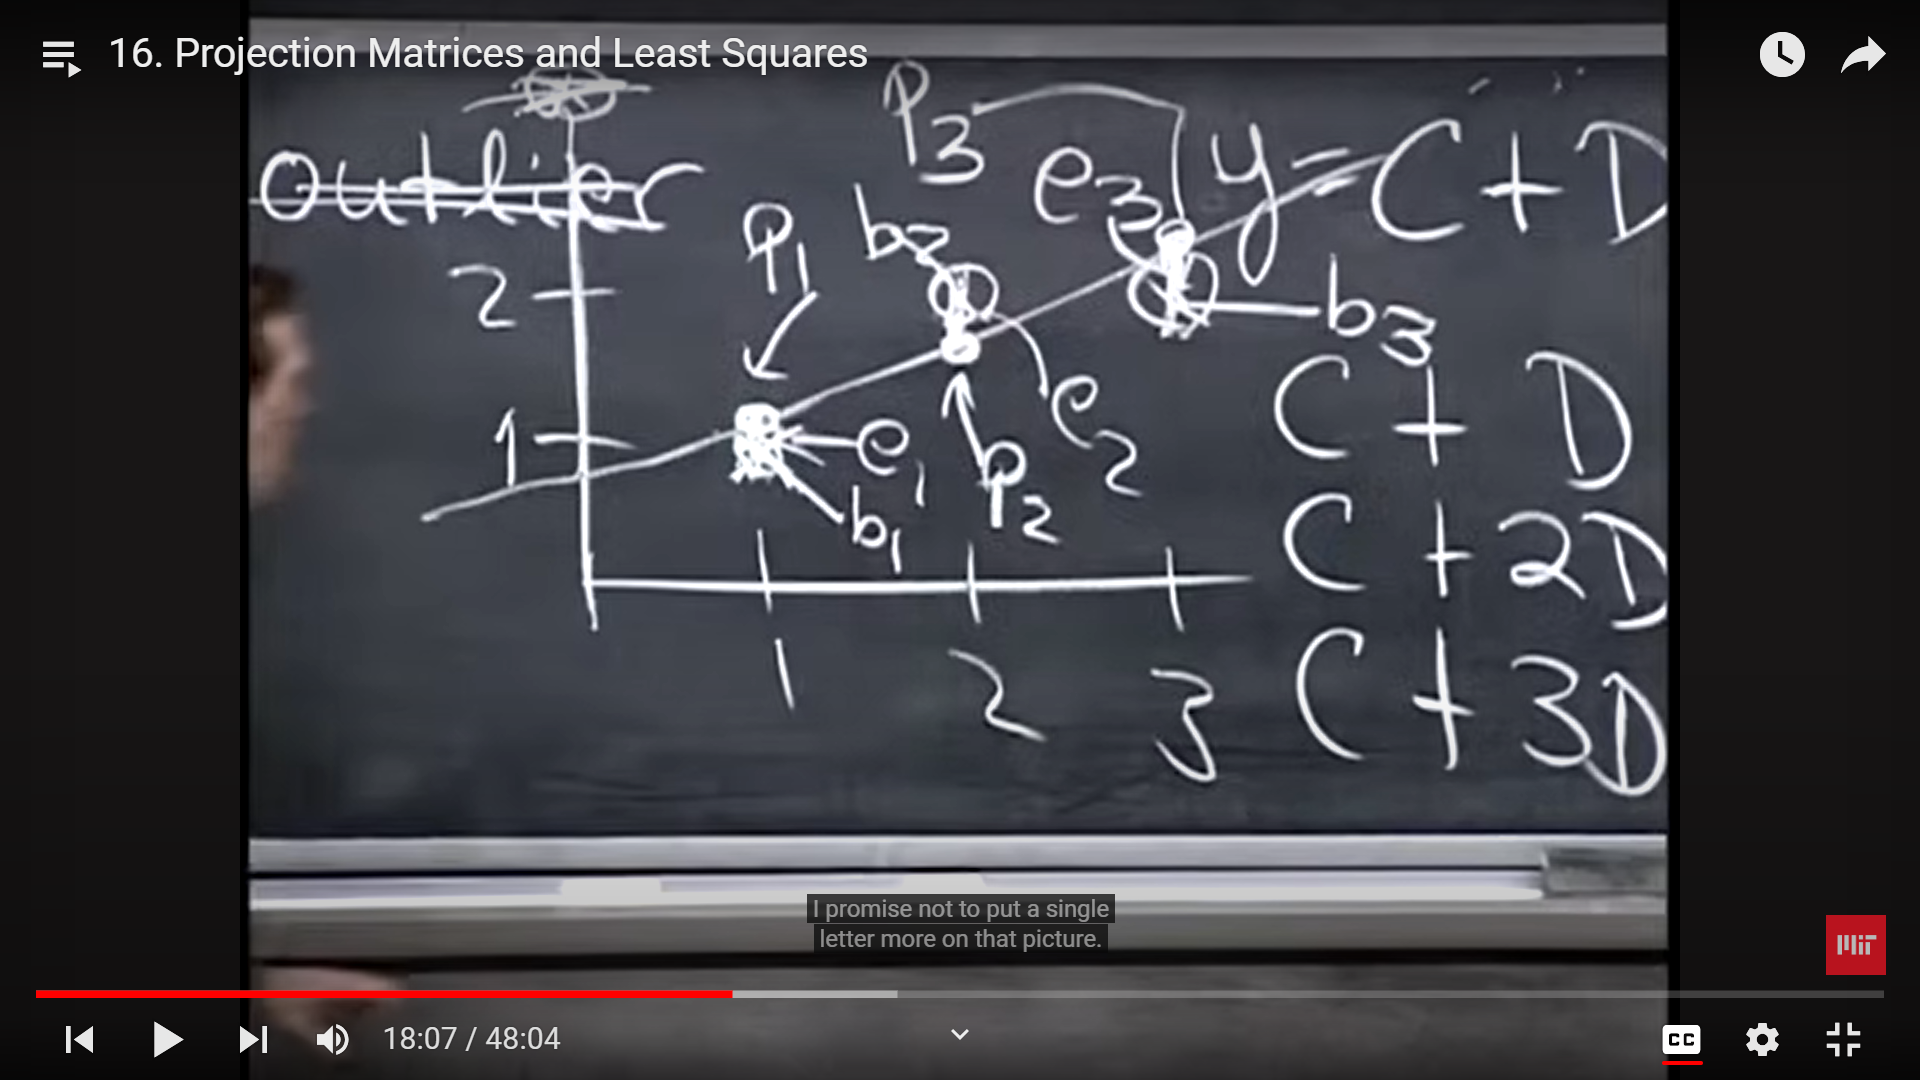 16. Projection Matrices and Least Squares
outlier
p3
e3
y = C + D
p1
b2
2
b3
1
e1
e2
b1
p2
C + D
C + 2D
C + 3D
1 2 3
I promise not to put a single
letter more on that picture.
MIT
18:07 / 48:04
CC